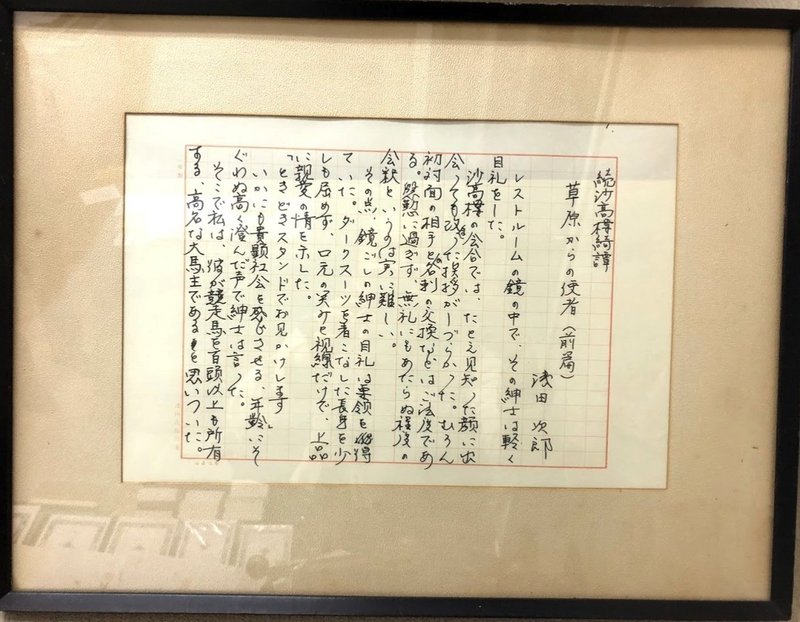 続沙高樓綺譚
草原からの使者（前篇）
浅田次郎
レストルームの鏡の中で、その紳士は軽く
目礼をした。
沙高樓の会合では、たとえ見知った顔に出
会っても改まった挨拶がしづらかった。むろん
初対面の相手との名刺の交換などはご法度であ
る。慇懃に過ぎず、無礼にもあたらぬ程度の
会釈というのは実に難しい。
その点、鏡ごしの紳士の目礼は要領を得
ていた。ダークスーツを着こなした長身を少
しも屈めず、口元の笑みと視線だけで、上品
に親愛の情を示した。
「ときどきスタンドでお見かけします」
いかにも貴顕社会を感じさせる、年齢にそ
ぐわぬ高く澄んだ声で紳士は言った。
そこで私は、彼が競走馬を百頭以上も所有
する、高名な大馬主であると思いついた。